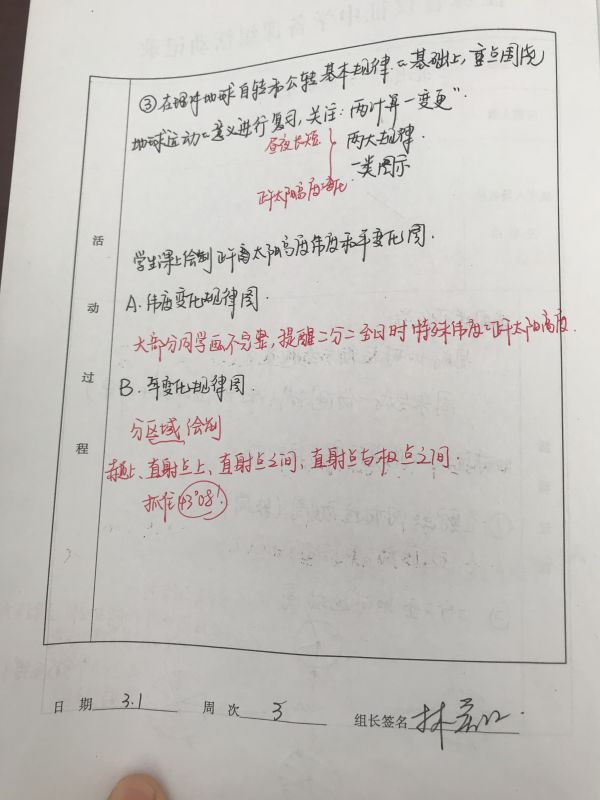 ③在理解地球自转和公转基本规律的基础上,重点围绕
地球运动的意义进行复习,关注:两计算一变更"
昼夜长短 两大规律.
正午太阳高度变化 一类图示
学生课上绘制正午太阳高度纬度和年变化图.
A. 纬度变化规律图.
大部分同学画不完整,提醒二分二至日时特殊纬度的正午太阳高度.
B. 年变化规律图.
分区域绘制
赤道上、直射点上、直射点之间、直射点与极点之间.
抓住43°08′!
活
动
过
程
日 期 3.1 周 次 3 组长签名